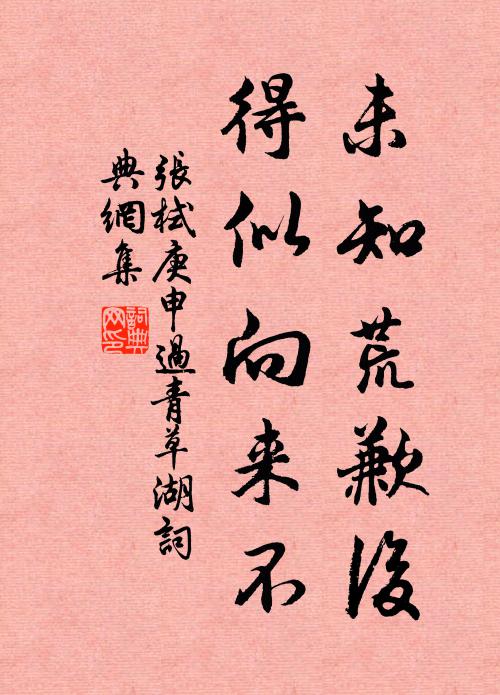 未知荒歉後
得似向来不
張栻庚申過青草湖詞
典網集
詞典
网印